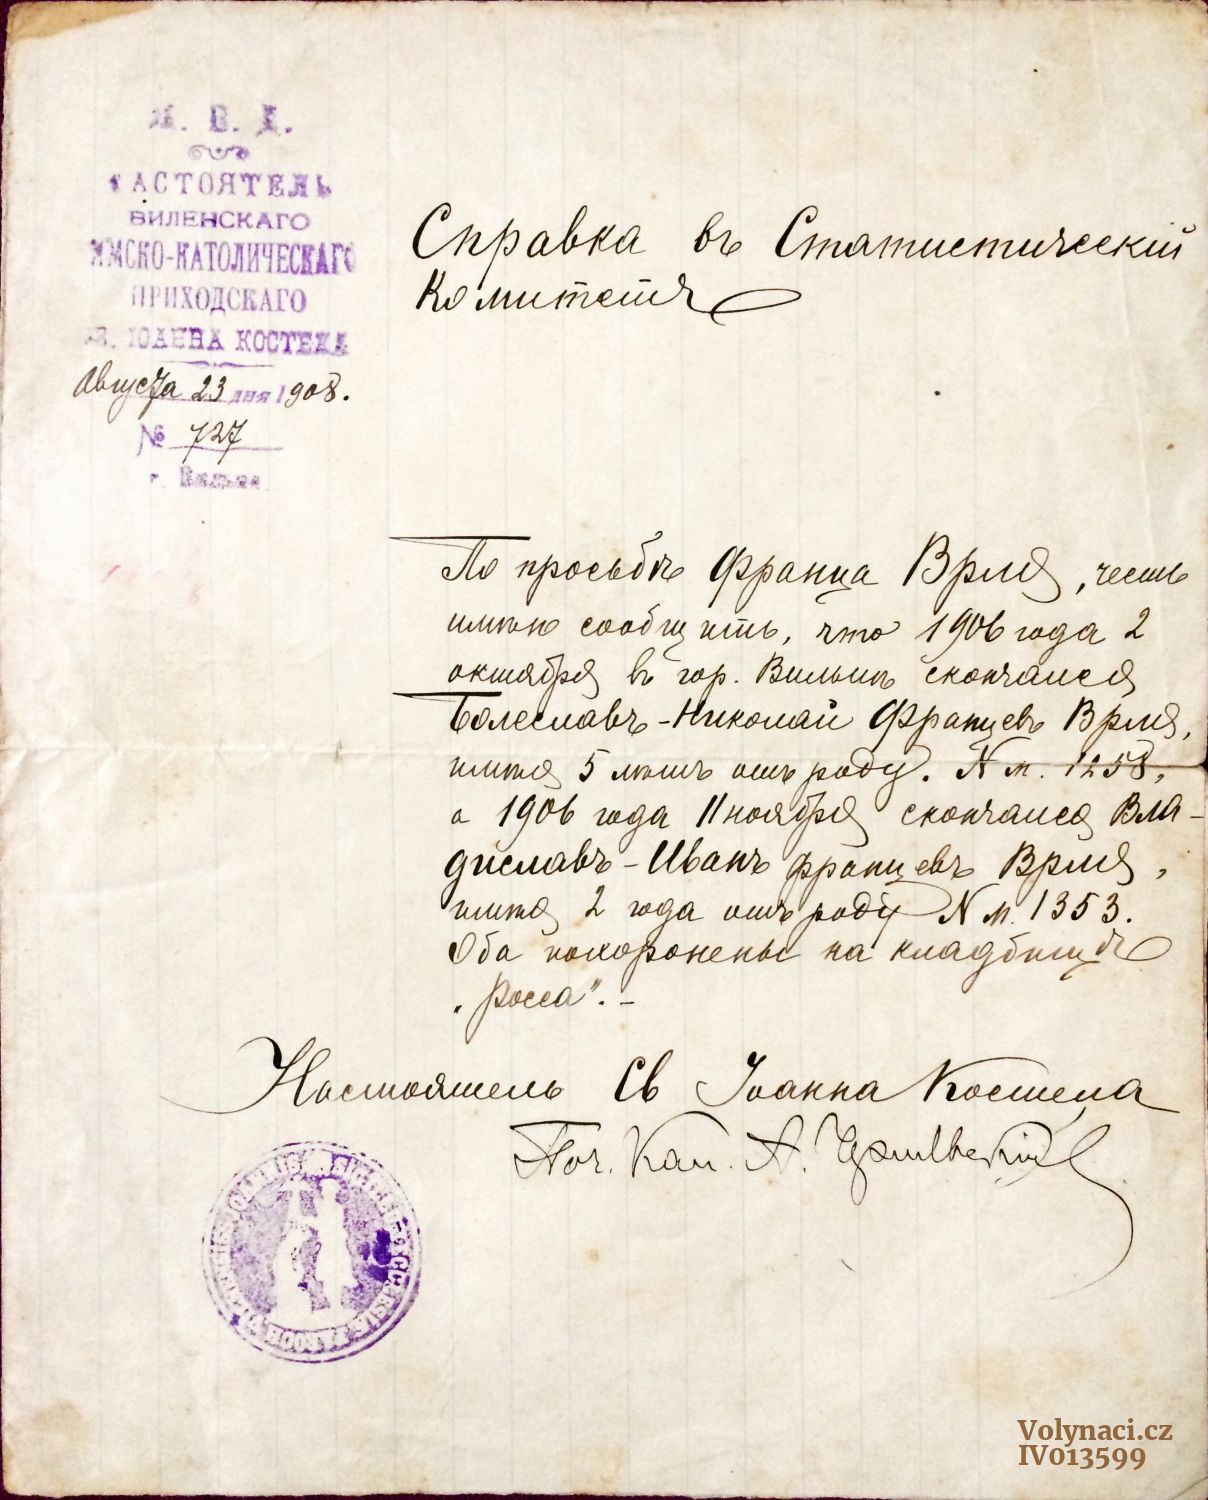 М. В. Д.
НАСТОЯТЕЛЬ
ВИЛЕНСКАГО
РИМСКО-КАТОЛИЧЕСКАГО
ПРИХОДСКАГО
СВ. ІОАННА КОСТЕЛА
Августа 23 дня 1908.
№ 727
г. Вильна
Справка въ Статистическій
Комитетъ
По просьбѣ Франца Врля, честь
имѣю сообщить, что 1906 года 2
октября въ гор. Вильнѣ скончался
Болеславъ-Николай Францевъ Врля,
имѣя 5 лѣтъ отъ роду. N м. 1258,
а 1906 года 11 ноября скончался Вла-
диславъ-Иванъ Францевъ Врля,
имѣя 2 года отъ роду N м. 1353.
Оба похоронены на кладбищѣ
„Росса". -
Настоятель Св Іоанна Костела
Поч. Кан. А.
Volynaci.cz
IV013599